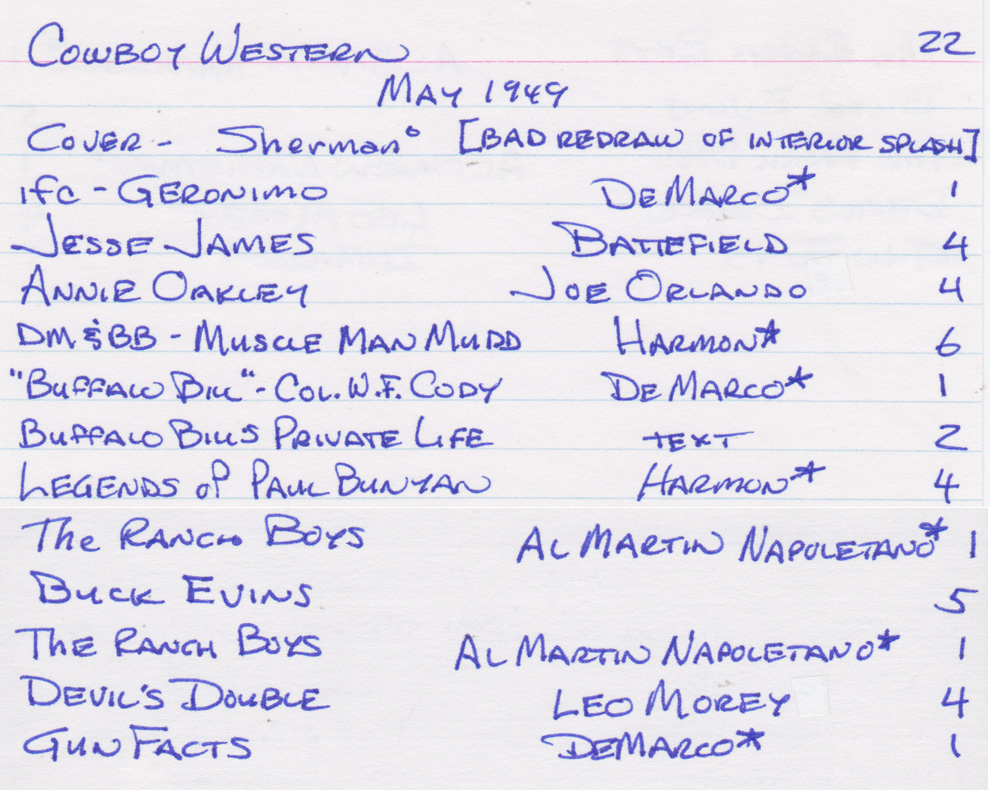 COWBOY WESTERN 22
MAY 1949
COVER - Sherman° [BAD REDRAW OF INTERIOR SPLASH]
ifc - GERONIMO DEMARCO* 1
JESSE JAMES BATTEFIELD 4
ANNIE OAKLEY JOE ORLANDO 4
DM & BB - MUSCLE MAN MUDD HARMON* 6
"BUFFALO BILL" - COL. W.F. CODY DEMARCO* 1
BUFFALO BILL'S PRIVATE LIFE TEXT 2
LEGENDS OF PAUL BUNYAN HARMON* 4
The RANCH BOYS AL MARTIN NAPOLETANO* 1
BUCK EVINS 5
THE RANCH BOYS AL MARTIN NAPOLETANO* 1
DEVIL'S DOUBLE LEO MOREY 4
GUN FACTS DEMARCO* 1